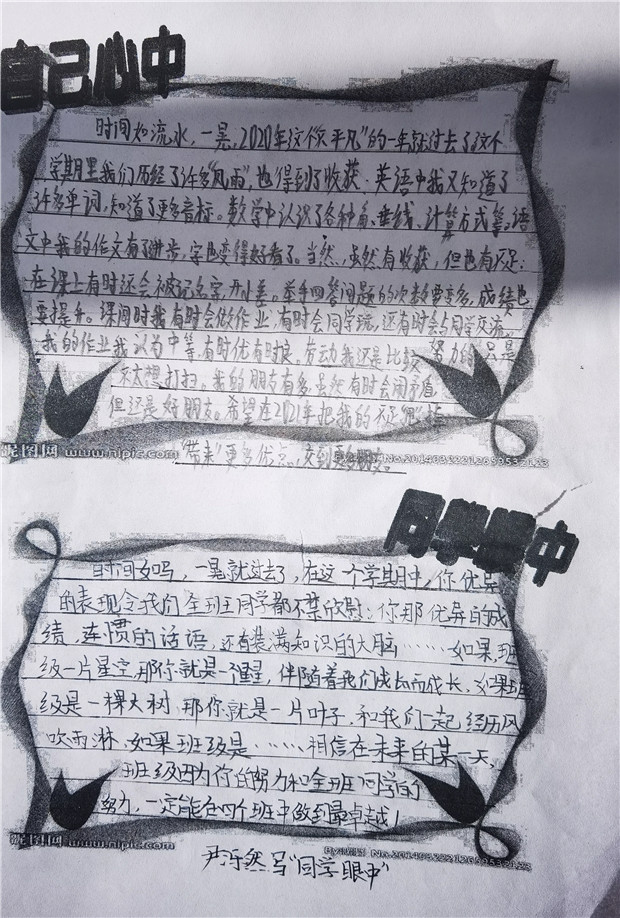 自己心中
时间如流水，一晃，2020年这个"不平凡"的一年就过去了，这个
学期里我们历经了许多"风雨"，也得到了收获。英语中我又知道了
许多单词，知道了更多音标。数学中认识了各种角、垂线、计算方式等。语
文中我的作文有了进步，字也变得好看了。当然，虽然有收获，但也有不足：
在课上有时还会被记名字，开小差。举手回答问题的次数要变多，成绩也
要提升。课间时我有时会做作业，有时会同学玩，还有时会与同学交流。
我的作业我认为中等，有时优有时良，劳动我还是比较努力的，只是
不太想打扫。我的朋友有多，虽然有时会闹矛盾
但还是好朋友。希望在2021年把我的不足"甩"掉
"带来"更多优点，交到更多朋友。
昵图网 www.nipic.com No.20140322212659532123
同学眼中
时间如吗，一晃就过去了，在这一个学期中，你优异
的表现令我们全班同学都不禁欣慰：你那优异的成
绩，连惯的话语，还有装满知识的大脑……如果班
级一片星空，那你就是一个星，伴随着我们成长而成长，如果班
级是一棵大树，那你就是一片叶子，和我们一起经历风
吹雨淋，如果班级是……相信在未来的某一天，
班级因为你的努力和全班同学的
努力，一定能在四个班中做到最卓越！
昵图网 www.nipic.com No.20140322212659532123
尹乐然写"同学眼中"